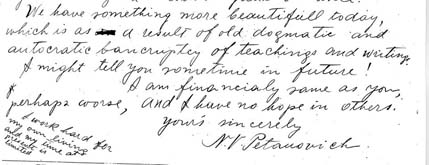 We have something more beautifull today,
which is as a result of old dogmatic and
autocratic bancruptcy of teachings and writing.
I might tell you sometime in future!
I am financialy same as you,
perhaps worse, and I have no hope in others.
Yours sincerely
N.V. Petanovich.
I work hard for
my own living
and my time at
present is
limited